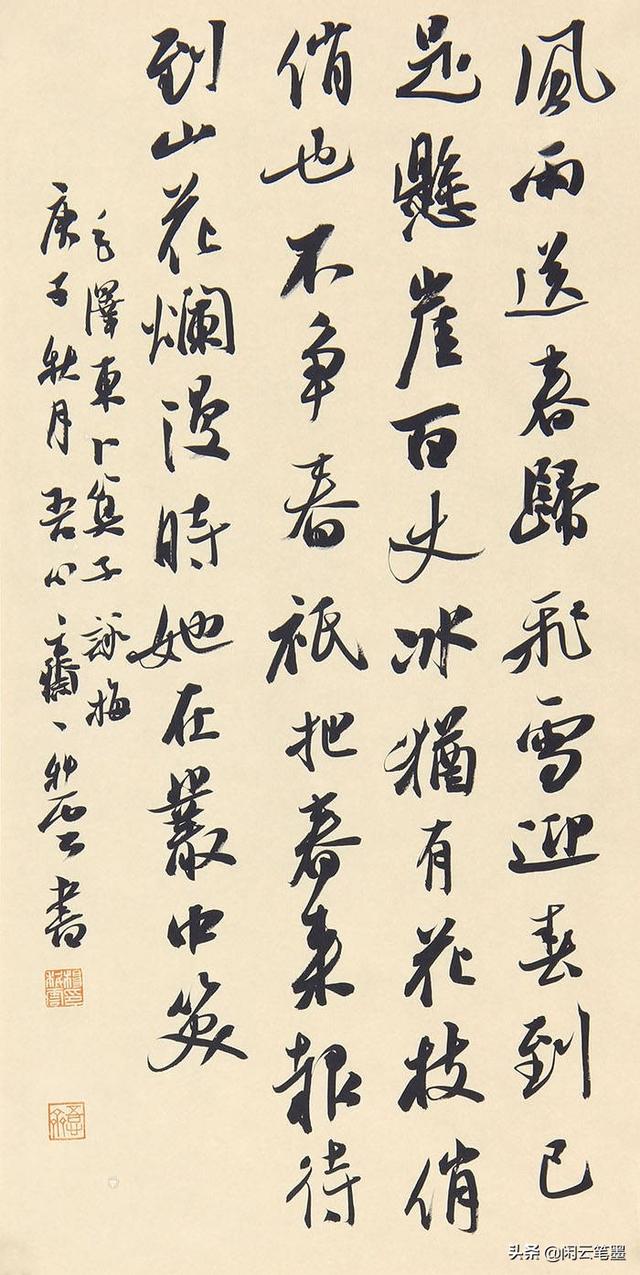 風雨送春歸飛雪迎春到已
是懸崖百丈冰猶有花枝俏
俏也不争春衹把春來報待
到山花爛漫時她在叢中笑
毛澤東卜算子詠梅
庚子秋月 書
头条 @闲云笔墨